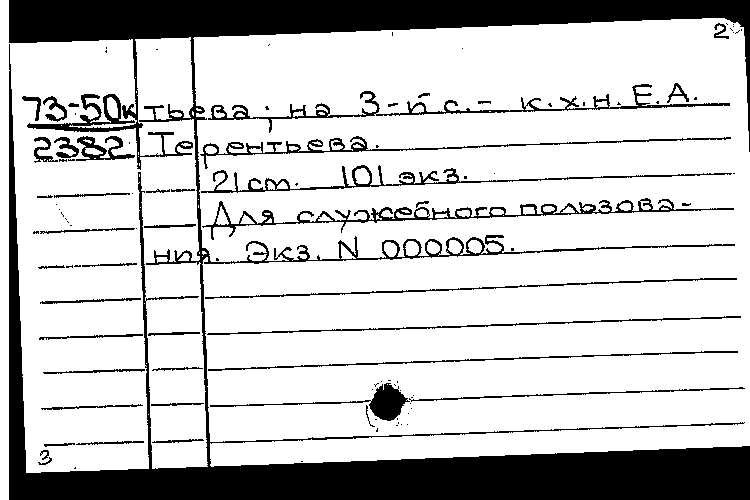 2
73-50к тьева; на 3-й с.- к.х.н. Е.А.
2382 Терентьева.
21 ст. 101 экз.
Для служебного пользова-
ния. Экз. N 000005.
3